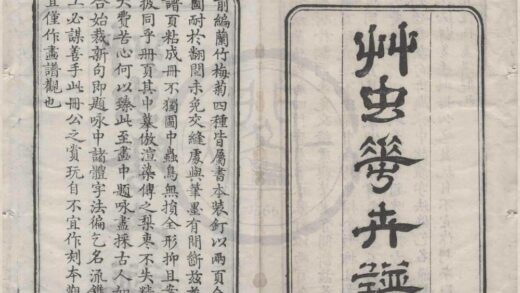 艸虫華卉譜
前編蘭竹梅菊四種皆屬書本裝釘以兩頁合
圖耐於翻閱未免交縫處與筆墨有間斷茲
譜頁粘成冊不獨圖中蟲鳥無損全形抑且案
彼同乎冊頁其中摹倣渲染傳之梨棗不失精
大費苦心何以臻此至畫中題咏盡採古人如
合始裁新句即題咏中諸體字法徧乞名流鐫
工必謀善手此冊公之賞玩自不宜作刻本觀
宜僅作畫譜觀也